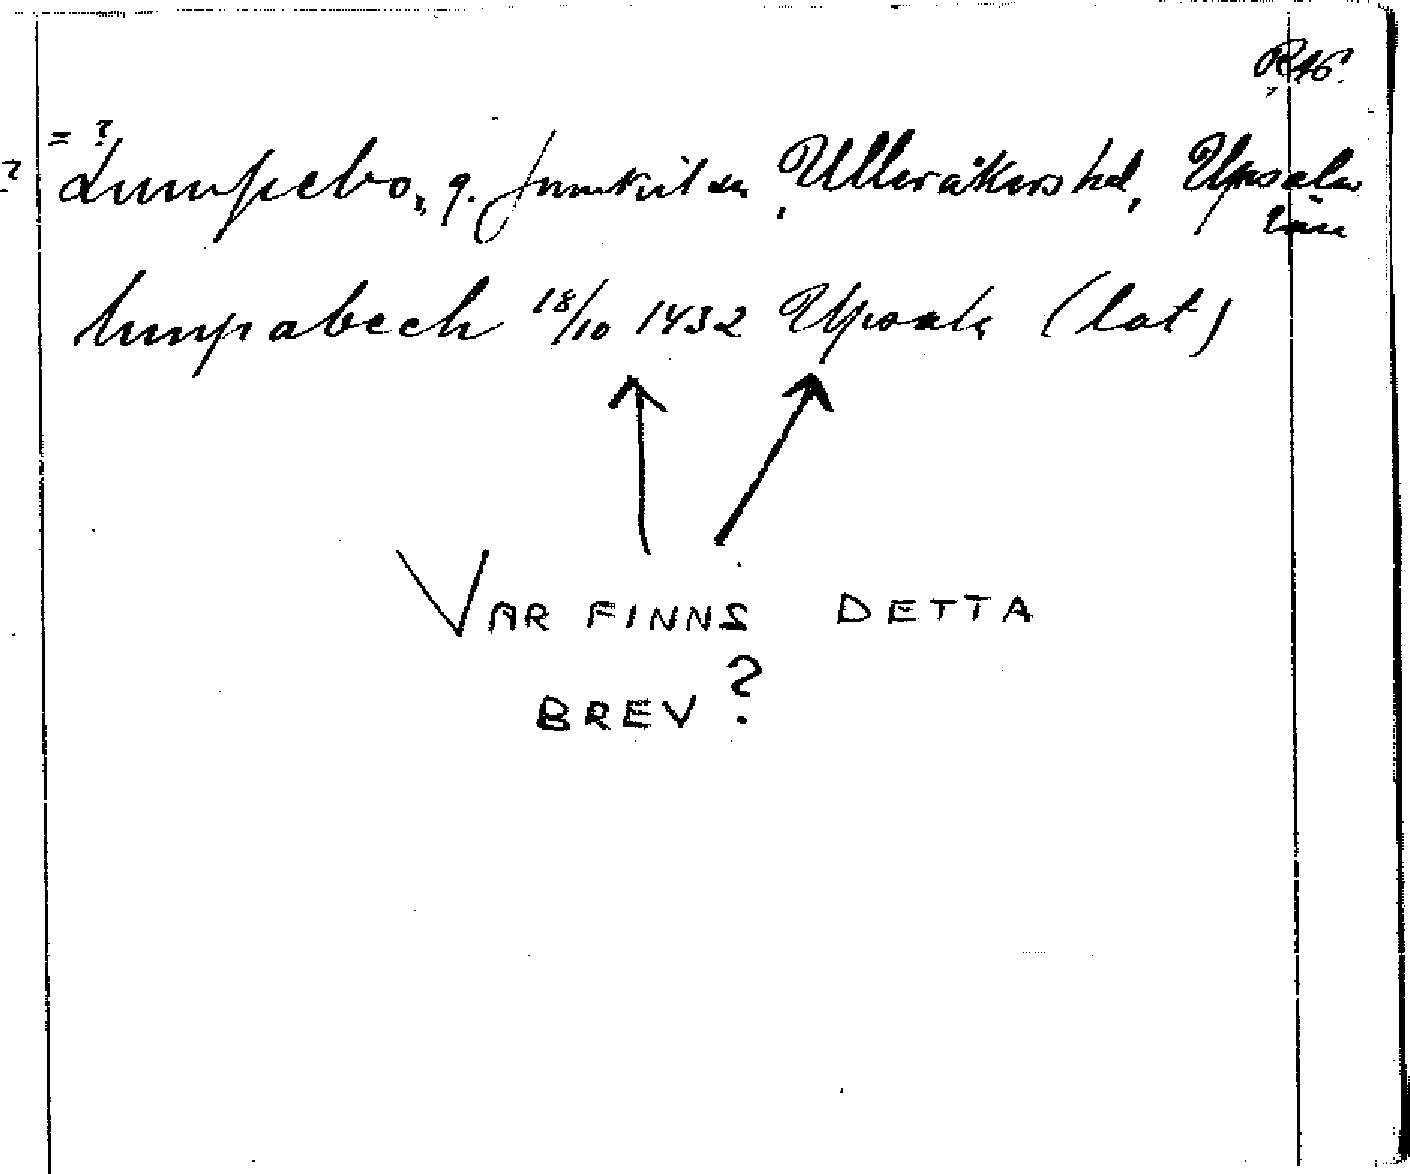 RAS.
= ?
? Lumpebo, g. Jumkil sn, Ulleråkers hd, Upsala
län
lumpabech 18/10 1432 Upsala (lat)
VAR FINNS DETTA
BREV?